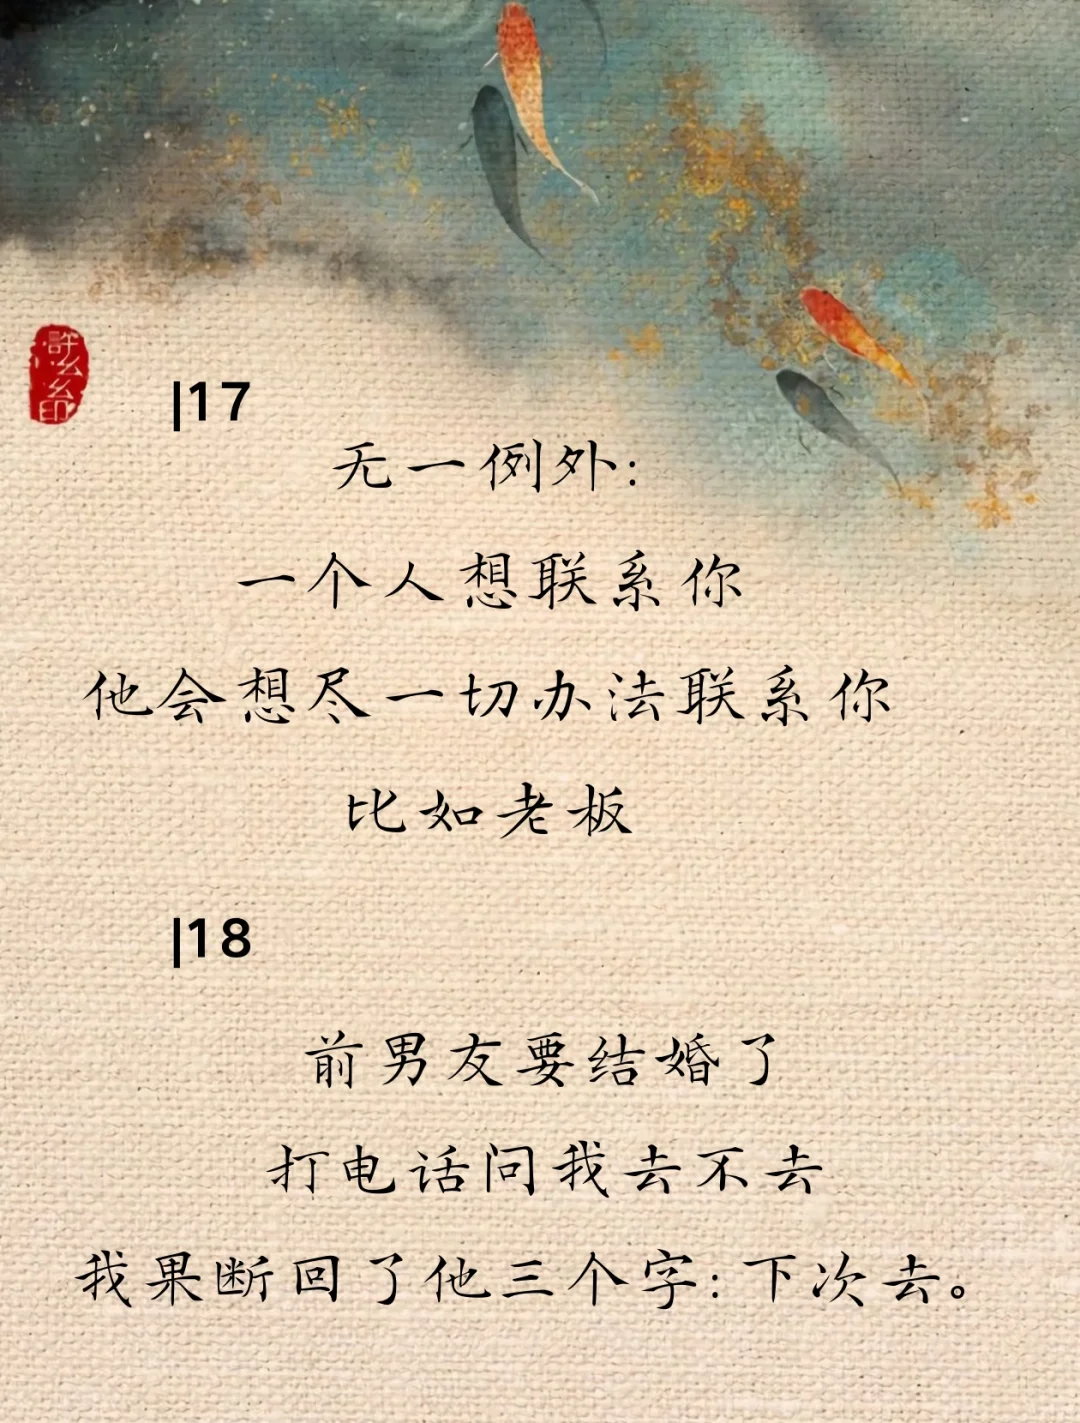 |17
无一例外:
一个人想联系你
他会想尽一切办法联系你
比如老板
|18
前男友要结婚了
打电话问我去不去
我果断回了他三个字:下次去。